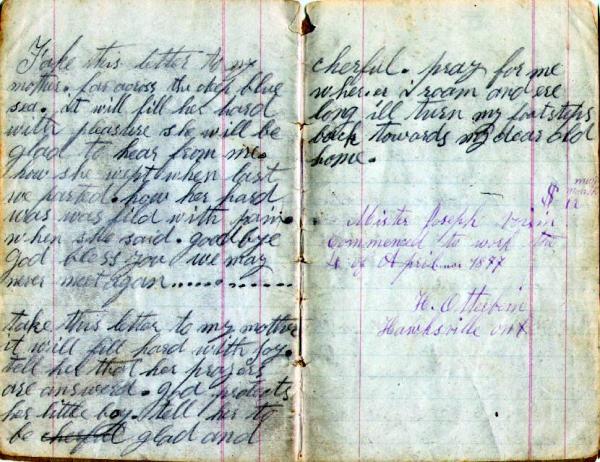 Take this letter to my
mother. far across the deep blue
sea. it will fill her hard
with pleasure she will be
glad to hear from me.
how she wept when last
we parted. how her hard
was was fild with pain
when she said. goodbye
god bless you we may
never meet again...........
take this letter to my mother
it will fill hard with joy.
tell her that her prayers
are answerd. god protects
her little boy. tell her to
be cherful glad and
cherful. pray for me
wher. er I roam and ere
long ill turn my footsteps
back towards my dear old
home.
$ 12
Mister Joseph
Commenced to work the
4 of April 1877
H. Otterbein
Hawksville ont